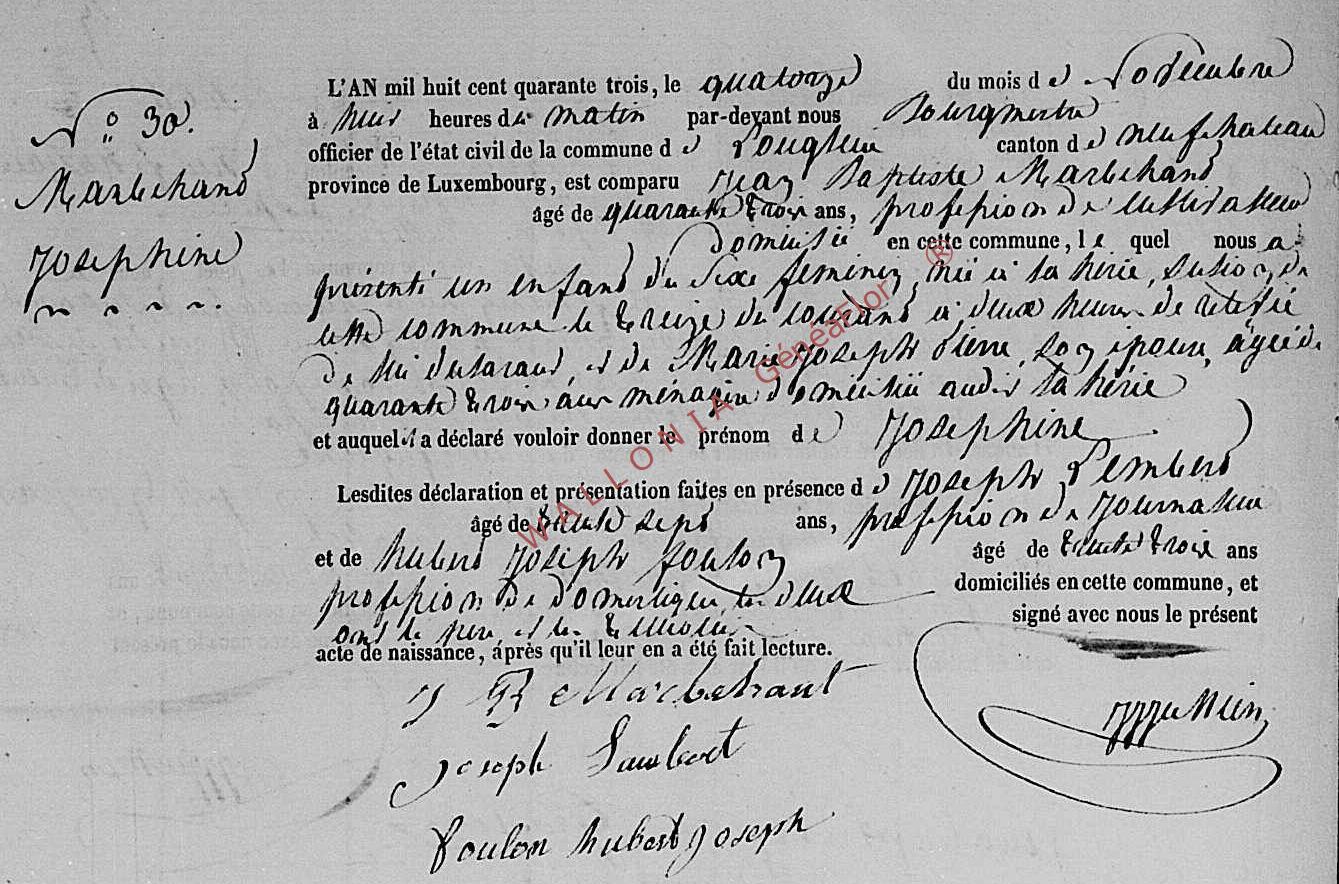 N° 30.
Marechand
Josephine
L'AN mil huit cent quarante trois, le quatorze du mois de Novembre
à huit heures du matin par-devant nous Bourgmestre
officier de l'état civil de la commune de Longlier canton de neufchateau
province de Luxembourg, est comparu Jean Baptiste Marechand
âgé de quarante trois ans, profession de cultivateur
domicilié en cette commune, le quel nous a
présenté un enfant du sexe feminin, née à la hérie, section de
cette commune le treize du courant à deux heures de relevée
de lui déclarant, et de Marie Joseph Pierre, son épouse, âgée de
quarante trois ans ménagère domiciliée audit la hérie
et auquel il a déclaré vouloir donner le prénom de Josephine
Lesdites déclaration et présentation faites en présence de Joseph Lambert
âgé de trente sept ans, profession de Journalier
et de hubert Joseph foulon âgé de trente trois ans
profession de domestique tous deux domiciliés en cette commune, et
ont le pere et les témoins signé avec nous le présent
acte de naissance, après qu'il leur en a été fait lecture.
J B Marechant
Joseph Lambert
foulon hubert Joseph
WALLONIA GénéaFlor ®